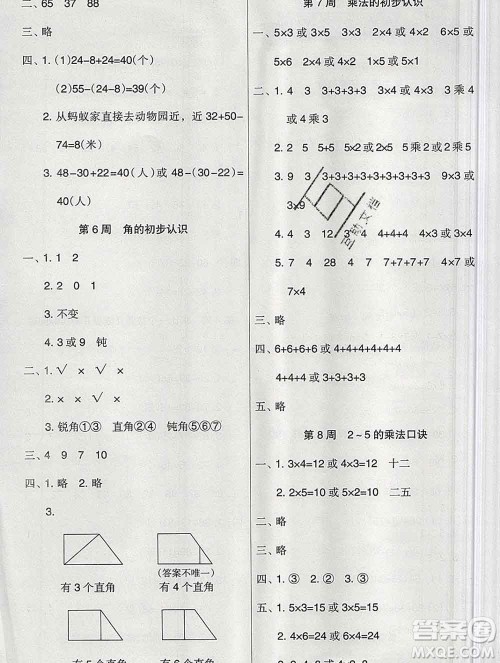 二、65 37 88
三、略
四、1. (1)24-8+24=40(个)
(2)55-(24-8)=39(个)
2. 从蚂蚁家直接去动物园近，近 32+50-
74=8(米)
3. 48-30+22=40(人) 或 48-(30-22)
=40(人)
第 6 周 角的初步认识
一、1. 1 2
2. 2 0 1
3. 不变
4. 3 或 9 钝
二、1. √ × √ ×
2. × √ × ×
3. 锐角①③ 直角②④ 钝角①③
三、4 9 7 10
四、1. 略 2. 略
3.
(答案不唯一)
有 3 个直角 有 4 个直角
有 5 个直角 有 6 个直角
第 7 周 乘法的初步认识
一、5×3 或 3×5 4×3 或 3×4 6×5 或
5×6 2×5 或 5×2
二、1. 4 3 3+3+3+3 3×4 或 4×3 3 乘 4
或 4 乘 3
2. 5 2 2+2+2+2+2 5 乘 2 或 2 乘 5
3. 9 3 3+3+3+3+3+3+3+3+3 9×3 或
3×9
4. 3 4 12 3 4 4×3 或 3×4
5. 7 4 28 4 7 7+7+7+7 4×7 或
7×4
三、略
四、6+6+6+6 或 4+4+4+4+4+4
4+4+4 或 3+3+3+3
五、略
第 8 周 2～5 的乘法口诀
一、1. 3×4=12 或 4×3=12 十二
2. 2×5=10 或 5×2=10 二五
二、略
三、略
四、1. ③ 2. ② 3. ②
五、1. 5×3=15 或 3×5=15
2. 4×6=24 或 6×4=24
答案圈
MXQE.COM